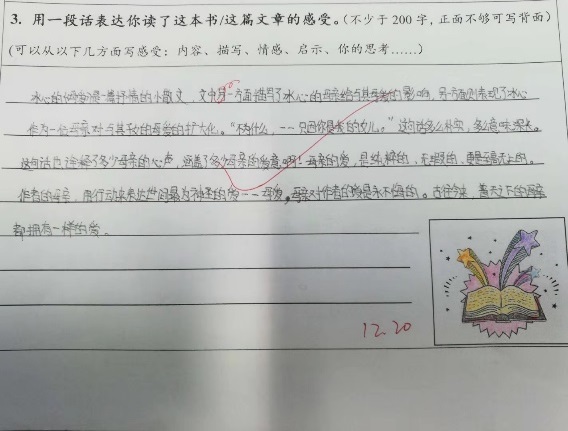 3. 用一段话表达你读了这本书/这篇文章的感受。(不少于 200 字，正面不够可写背面)
(可以从以下几方面写感受：内容、描写、情感、启示、你的思考……)
冰心的《母爱》是一篇抒情的小散文，文中一方面描写了冰心的母亲给与其母爱的影响，另一方面则表现了冰心
作为一位母亲对与其孩的母爱的扩大化。“不为什么，--只因你是我的女儿。”这句话多么朴实，多么意味深长。
这句话也诠释了多少母亲的心声，涵盖了多少母亲的爱意啊！母亲的爱，是纯粹的，无瑕的，更是至高无上的。
作者的母亲，用行动来表达世间最为神圣的爱--母爱。母亲对作者的爱是永不停的。古往今来，普天下的母亲
都拥有一样的爱。
12.20